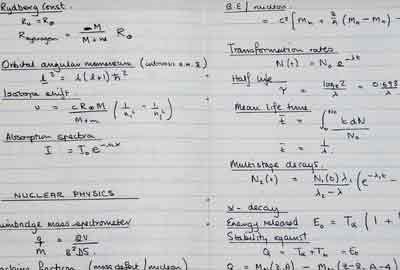 Rydberg Const.
R∞ = R∞
R_hydrogen = M / (M + m) R∞
Orbital angular momentum
l² = l(l+1)ħ²
Isotope shift.
ν = cR∞M / (M+m) (1/n₁² - 1/n₂²)
Absorption spectra
I = I₀ e^
NUCLEAR PHYSICS
mass spectrometer
q/M = 2V / B²DS
fraction (mass defect / nucleon)
B.E / nucleon
= c² [Mn + Z/A (
Transformation rates
N(t) = N₀ e^-λt
Half life
τ = loge2 / λ = 0.693
Mean life time
t̄ = ∫ t dN / N₀
t̄ = 1/λ
Multistage decays.
N₂(t) = N₁(0) λ₁ / (λ₂ - λ₁) (e^-λ₁t -
α - decay
Energy released E₀ = Tα (1 +
Stability against
Q = Tα + Tb = E₀
Q = M - M(Z-2, A-4)